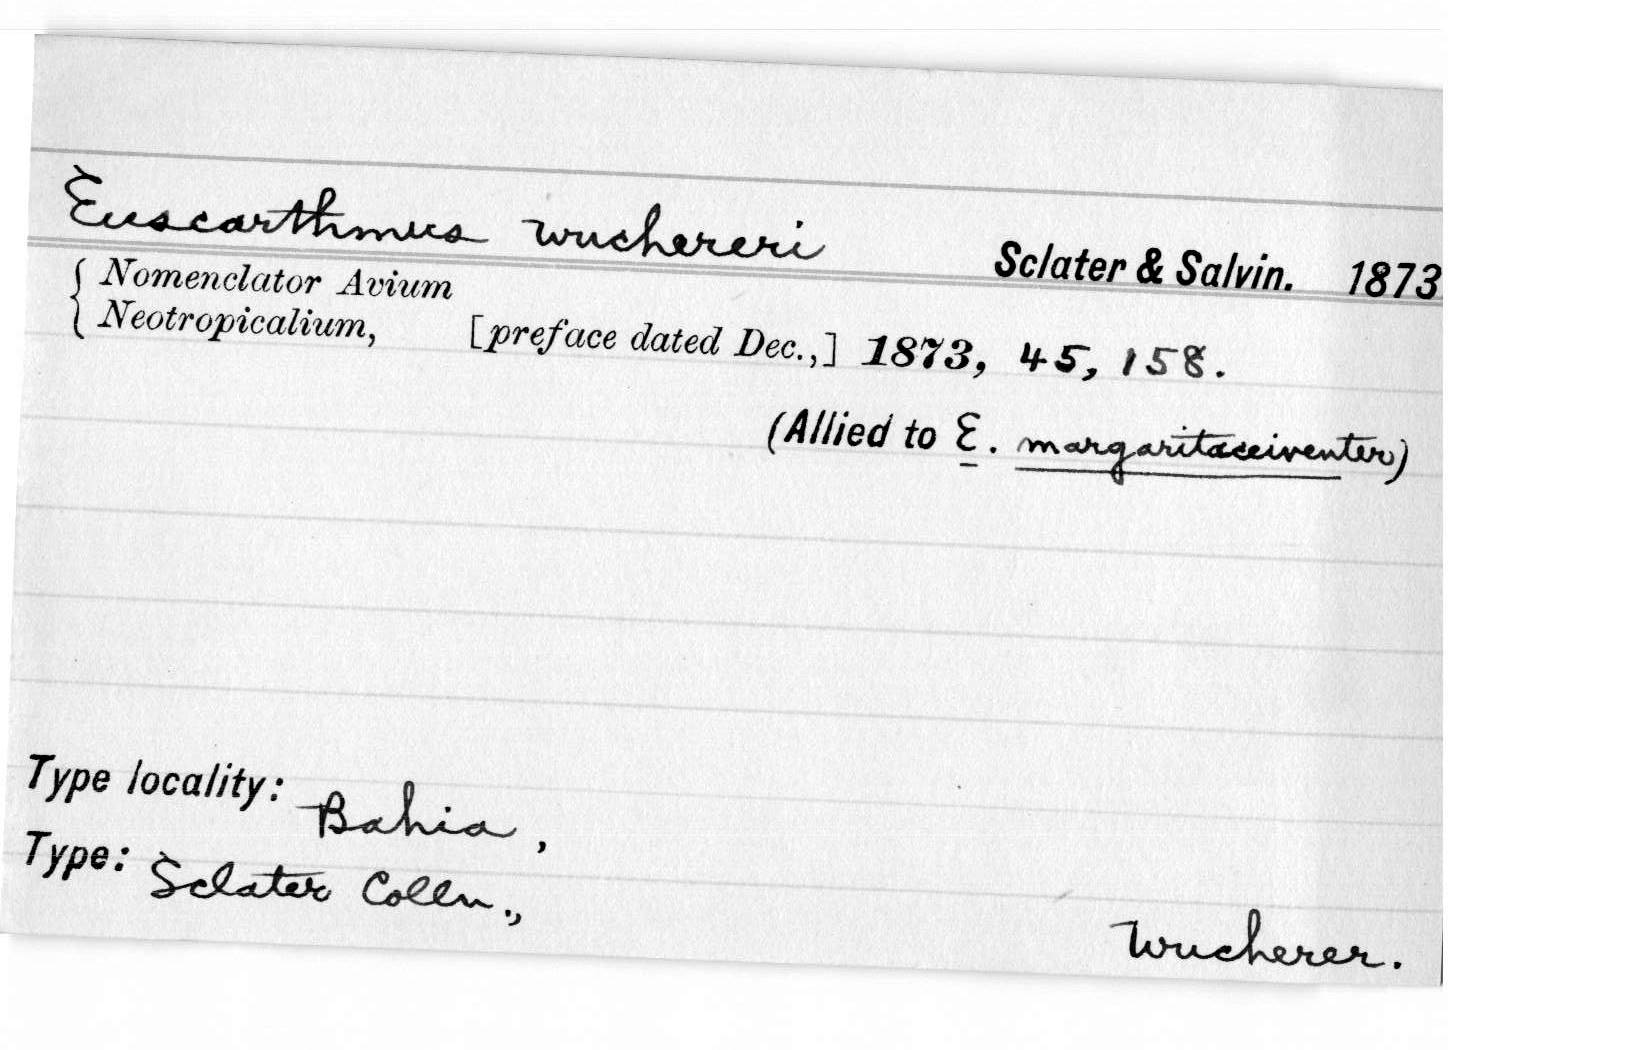 Euscarthmus wuchereri Sclater & Salvin. 1873
{ Nomenclator Avium
Neotropicalium, [preface dated Dec.,] 1873, 45, 158.
(Allied to E. margaritaceiventer)
Type locality: Bahia,
Type: Sclater Colln.,
Wucherer.